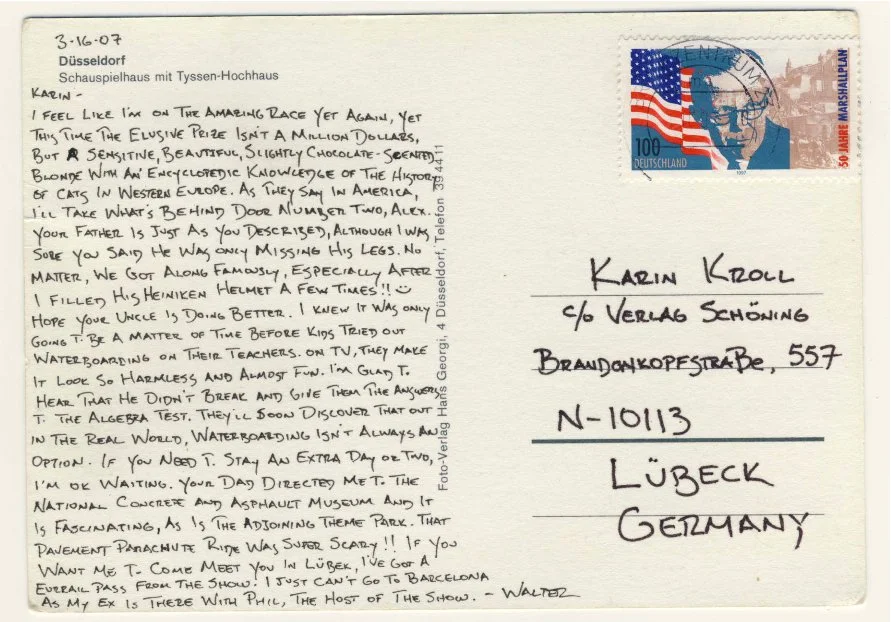 3-16-07
Düsseldorf
Schauspielhaus mit Tyssen-Hochhaus
KARIN -
I FEEL LIKE I'M ON THE AMAZING RACE YET AGAIN, YET
THIS TIME THE ELUSIVE PRIZE ISN'T A MILLION DOLLARS,
BUT A SENSITIVE, BEAUTIFUL, SLIGHTLY CHOCOLATE-SCENTED
BLONDE WITH AN ENCYCLOPEDIC KNOWLEDGE OF THE HISTORY
OF CATS IN WESTERN EUROPE. AS THEY SAY IN AMERICA,
I'LL TAKE WHAT'S BEHIND DOOR NUMBER TWO, ALEX.
YOUR FATHER IS JUST AS YOU DESCRIBED, ALTHOUGH I WAS
SURE YOU SAID HE WAS ONLY MISSING HIS LEGS. NO
MATTER, WE GOT ALONG FAMOUSLY, ESPECIALLY AFTER
I FILLED HIS HEINIKEN HELMET A FEW TIMES!!
HOPE YOUR UNCLE IS DOING BETTER. I KNEW IT WAS ONLY
GOING T. BE A MATTER OF TIME BEFORE KIDS TRIED OUT
WATERBOARDING ON THEIR TEACHERS. ON TV, THEY MAKE
IT LOOK SO HARMLESS AND ALMOST FUN. I'M GLAD T.
HEAR THAT HE DIDN'T BREAK AND GIVE THEM THE ANSWERS
T. THE ALGEBRA TEST. THEY'LL SOON DISCOVER THAT OUT
IN THE REAL WORLD, WATERBOARDING ISN'T ALWAYS AN
OPTION. IF YOU NEED T. STAY AN EXTRA DAY OR TWO,
I'M OK WAITING. YOUR DAD DIRECTED ME T. THE
NATIONAL CONCRETE AND ASPHALT MUSEUM AND IT
IS FASCINATING, AS IS THE ADJOINING THEME PARK. THAT
PAVEMENT PARACHUTE RIDE WAS SUPER SCARY!! IF YOU
WANT ME T. COME MEET YOU IN LÜBEK, I'VE GOT A
EURRAIL PASS FROM THE SHOW. I JUST CAN'T GO TO BARCELONA
AS MY EX IS THERE WITH PHIL, THE HOST OF THE SHOW. - WALTER
Foto-Verlag Hans Georgi, 4 Düsseldorf, Telefon 39 44 11
ZENTRUM
100
DEUTSCHLAND
1997
50 JAHRE MARSHALLPLAN
KARIN KROLL
c/o VERLAG SCHÖNING
BRANDONKOPFSTRAßE, 557
N-10113
LÜBECK
GERMANY